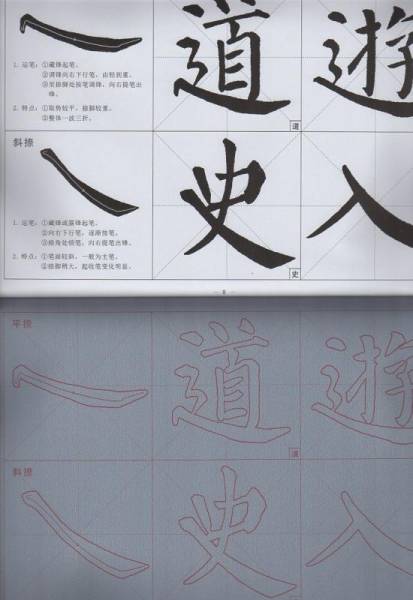 道 遊
1. 运笔：①藏锋起笔。
②调锋向右下行笔，由轻到重。
③至捺脚处按笔调锋，向右提笔出
锋。
2. 特点：①取势较平，捺脚较重。
②整体一波三折。
道
斜捺
史 入
1. 运笔：①藏锋或露锋起笔。
②向右下行笔，逐渐按笔。
③捺角处顿笔，向右提笔出锋。
2. 特点：①笔画较斜，一般为主笔。
②捺脚稍大，起收笔变化明显。
史
平捺
道 遊
道
斜捺
史 入